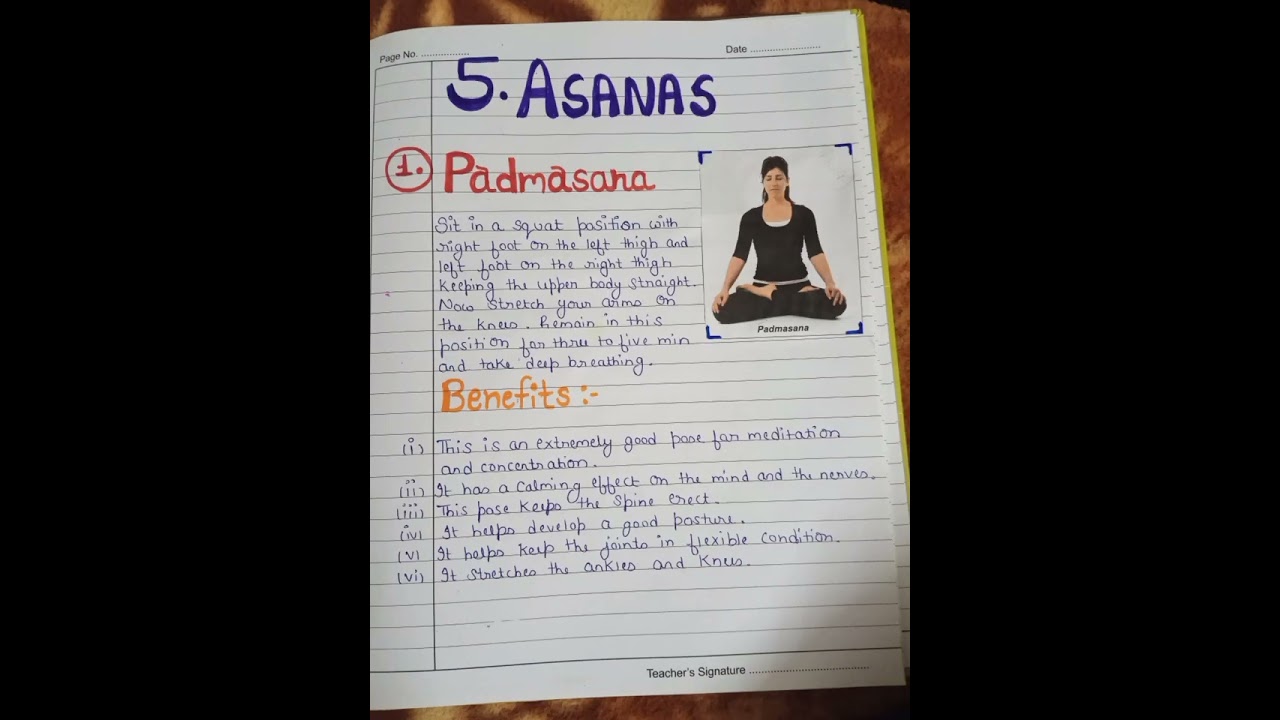 Page No. ................
Date ........................
5. ASANAS
1. Padmasana
Sit in a squat position with
right foot on the left thigh and
left foot on the right thigh
keeping the upper body straight.
Now stretch your arms on
the knees. Remain in this
position for three to five min
and take deep breathing.
Padmasana
Benefits :-
(i) This is an extremely good pose for meditation
and concentration.
(ii) It has a calming effect on the mind and the nerves.
(iii) This pose keeps the spine erect.
(iv) It helps develop a good posture.
(v) It helps keep the joints in flexible condition.
(vi) It stretches the ankles and knees.
Teacher's Signature ...................................